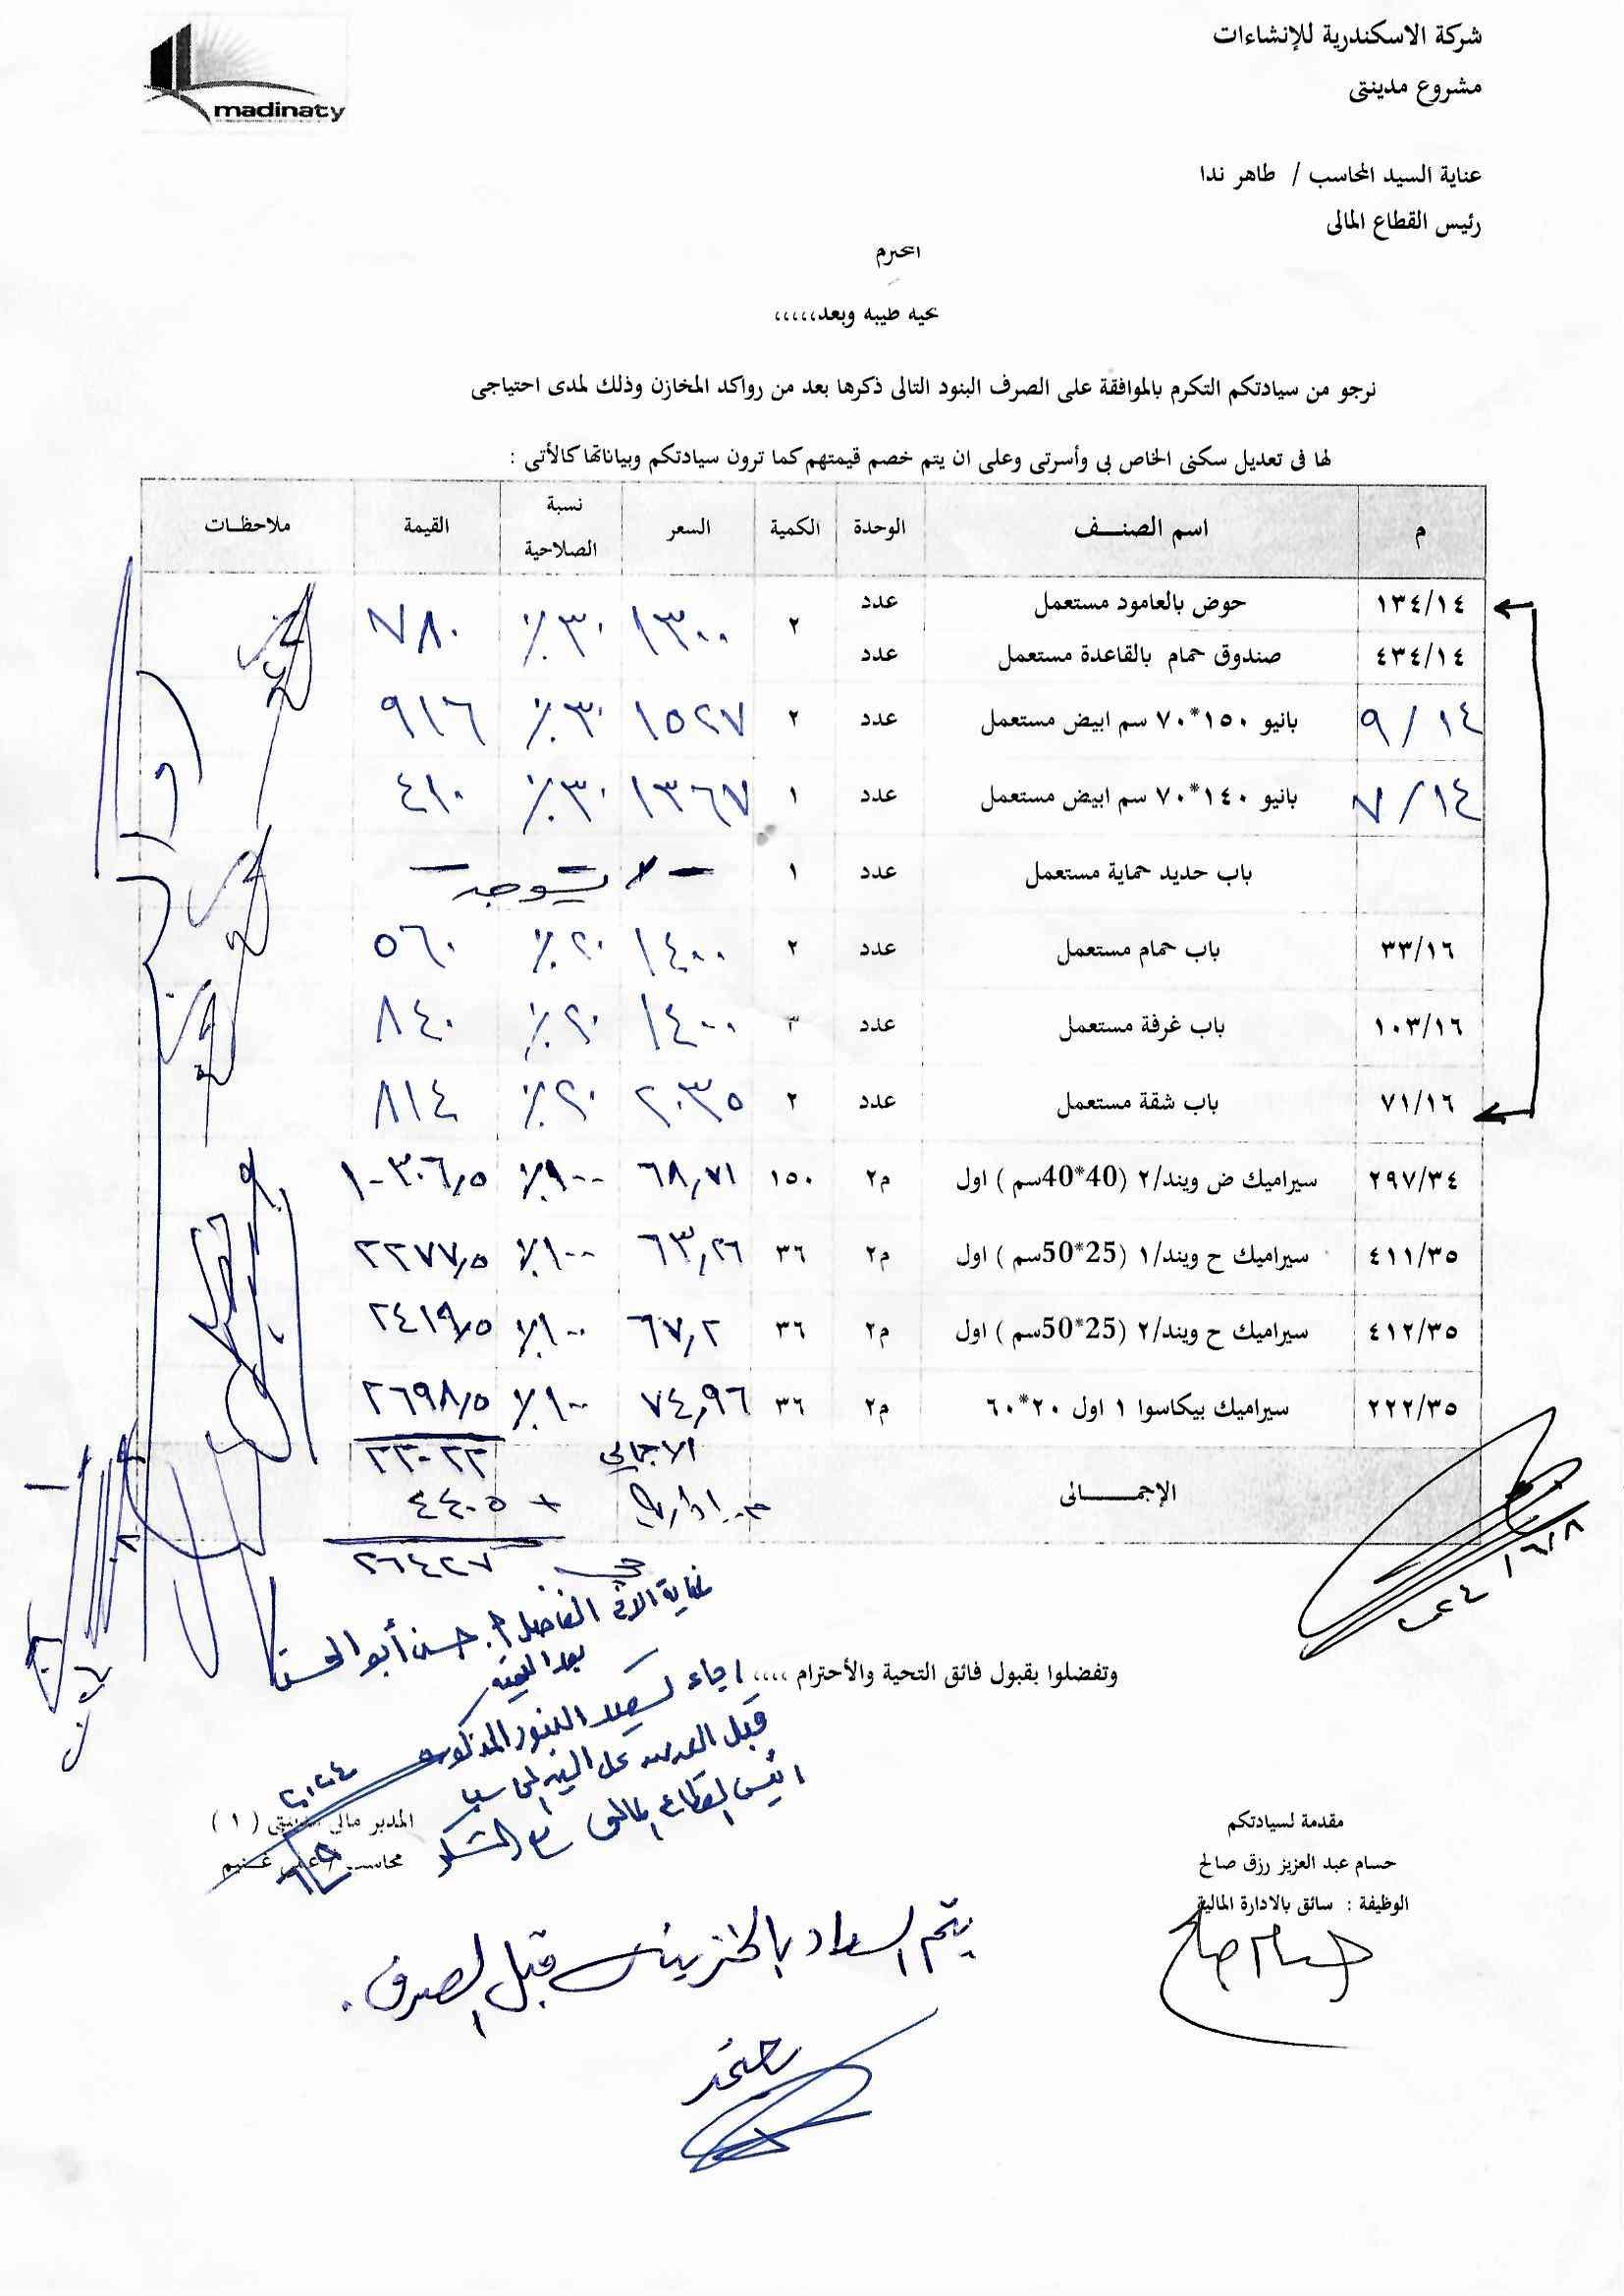 madinaty
شركة الاسكندرية للإنشاءات
مشروع مدينتى
عناية السيد المحاسب / طاهر ندا
رئيس القطاع المالى
المحترم
تحيه طيبه وبعد،،،،،
نرجو من سيادتكم التكرم بالموافقة على الصرف البنود التالى ذكرها بعد من رواكد المخازن وذلك لمدى احتياجى
لها فى تعديل سكنى الخاص بى وأسرتى وعلى ان يتم خصم قيمتهم كما ترون سيادتكم وبياناتها كالأتى :
م اسم الصنـــف الوحدة الكمية السعر نسبة الصلاحية القيمة ملاحظـات
١٣٤/١٤ حوض بالعامود مستعمل عدد ٢ ١٣٠٠ ٣٠٪ ٧٨٠
٤٣٤/١٤ صندوق حمام بالقاعدة مستعمل عدد
٩/١٤ بانيو ١٥٠*٧٠ سم ابيض مستعمل عدد ٢ ١٥٢٧ ٣٠٪ ٩١٦
٧/١٤ بانيو ١٤٠*٧٠ سم ابيض مستعمل عدد ١ ١٣٦٧ ٣٠٪ ٤١٠
باب حديد حماية مستعمل عدد ١ - لا يوجد -
٣٣/١٦ باب حمام مستعمل عدد ٢ ١٤٠٠ ٢٠٪ ٥٦٠
١٠٣/١٦ باب غرفة مستعمل عدد ٣ ١٤٠٠ ٢٠٪ ٨٤٠
٧١/١٦ باب شقة مستعمل عدد ٢ ٢٠٣٥ ٢٠٪ ٨١٤
٢٩٧/٣٤ سيراميك ض ويند/٢ (40*40سم ) اول م٢ ١٥٠ ٦٨,٧١ ١٠٠٪ ١٠٣٠٦,٥
٤١١/٣٥ سيراميك ح ويند/١ (25*50سم ) اول م٢ ٣٦ ٦٣,٢٦ ١٠٠٪ ٢٢٧٧,٥
٤١٢/٣٥ سيراميك ح ويند/٢ (25*50سم ) اول م٢ ٣٦ ٦٧,٢ ١٠٠٪ ٢٤١٩,٥
٢٢٢/٣٥ سيراميك بيكاسوا ١ اول ٢٠*٦٠ م٢ ٣٦ ٧٤,٩٦ ١٠٠٪ ٢٦٩٨,٥
الاجمالي ٢٢٠٢٢
الإجمــــالى
م. إدارية + ٤٤٠٥
٢٦٤٢٧
عناية الاخ الفاضل أ. حسن أبو الحسن
بعد التحية
وتفضلوا بقبول فائق التحية والأحترام ،،،،
البنود المذكورة
قبل العرض على السيد المحاسب
رئيس القطاع المالى مع الشكر
٢٠٢٤
المدير مالى مدينتى ( ١ )
محاسب / على غنيم
مقدمة لسيادتكم
حسام عبد العزيز رزق صالح
الوظيفة : سائق بالادارة المالية
حسام صالح
يتم السداد بالخزينة قبل الصرف .